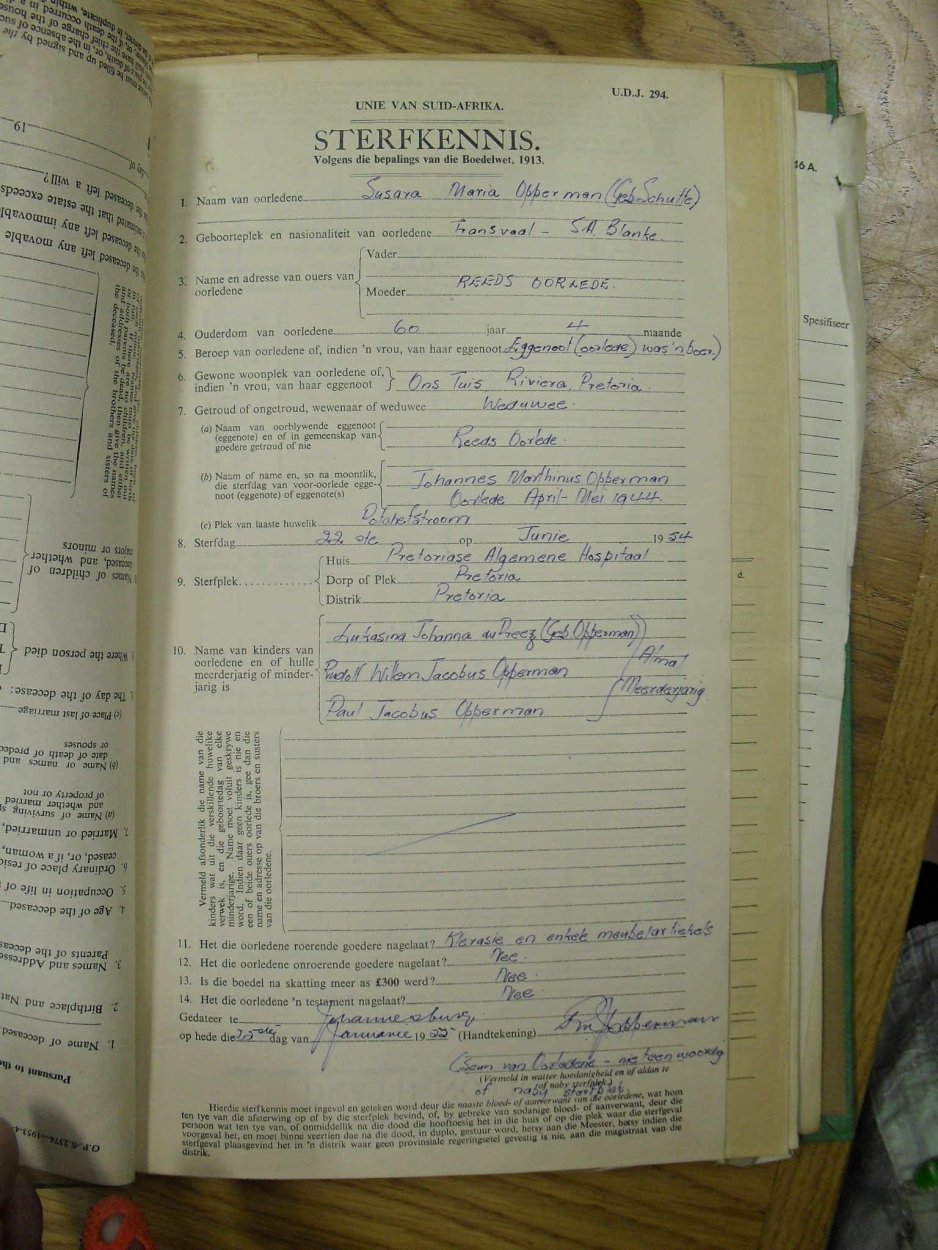 U.D.J. 294.
UNIE VAN SUID-AFRIKA.
STERFKENNIS.
Volgens die bepalings van die Boedelwet, 1913.
1. Naam van oorledene Susara Maria Opperman (Geb. Schutte)
2. Geboorteplek en nasionaliteit van oorledene Transvaal - S.A. Blanke.
3. Name en adresse van ouers van oorledene
Vader
Moeder REEDS OORLEDE.
4. Ouderdom van oorledene 60 jaar 4 maande
5. Beroep van oorledene of, indien 'n vrou, van haar eggenoot Eggenoot (oorlede) was 'n boer.)
6. Gewone woonplek van oorledene of, indien 'n vrou, van haar eggenoot
Ons Tuis Riviera, Pretoria.
7. Getroud of ongetroud, wewenaar of weduwee Weduwee.
(a) Naam van oorblywende eggenoot (eggenote) en of in gemeenskap van goedere getroud of nie
Reeds Oorlede.
(b) Naam of name en, so na moontlik, die sterfdag van voor-oorlede eggenoot (eggenote) of eggenote(s)
Johannes Marthinus Opperman
Oorlede April - Mei 1944.
(c) Plek van laaste huwelik Potchefstroom
8. Sterfdag 22 ste op Junie 1954
9. Sterfplek
Huis Pretoriase Algemene Hospitaal
Dorp of Plek Pretoria
Distrik Pretoria
10. Name van kinders van oorledene en of hulle meerderjarig of minderjarig is
Lukasina Johanna du Preez (Geb. Opperman)
Rudolf Willem Jacobus Opperman
Paul Jacobus Opperman
Almal
Meerderjarig.
Vermeld afsonderlik die name van die
kinders wat uit die verskillende huwelike
verwek is, en die geboortedag van elke
minderjarige. Name moet voluit geskrywe
word. Indien daar geen kinders is nie en
een of beide ouers oorlede is, gee dan die
name en adresse op van die broers en susters
van die oorledene.
11. Het die oorledene roerende goedere nagelaat? Klerasie en enkele meubelartiekels
12. Het die oorledene onroerende goedere nagelaat? Nee.
13. Is die boedel na skatting meer as £300 werd? Nee.
14. Het die oorledene 'n testament nagelaat? Nee.
Gedateer te Johannesburg
op hede die 25ste dag van Januarie 1955 (Handtekening) Opperman
(Seun van Oorledene - nie teenwoordig
(Vermeld in watter hoedanigheid en of aldan te
of naby sterfplek.)
of naby sterfplek)
Hierdie sterfkennis moet ingevul en geteken word deur die naaste bloed- of aanverwant van die oorledene, wat hom
ten tye van die afsterwing op of by die sterfplek bevind, of, by gebreke van sodanige bloed- of aanverwant, deur die
persoon wat ten tye van, of onmiddellik na die dood die hooftoesig het in die huis of op die plek waar die sterfgeval
voorgeval het, en moet binne veertien dae na die dood, in duplo, gestuur word, hetsy aan die Meester, hetsy indien die
sterfgeval plaasgevind het in 'n distrik waar geen provinsiale regeringsetel gevestig is nie, aan die magistraat van die
distrik.
46 A.
Spesifiseer
d.
Pursuant to the
1. Name of deceased
2. Birthplace and Nat
3. Names and Addresses
Parents of the deceas
4. Age of the deceased
5. Occupation in life of
6. Ordinary place of resid
ceased, or, if a woman,
7. Married or unmarried,
(a) Name of surviving sp
and whether married
of property or not
(b) Name or names and
date of death of predec
or spouses
(c) Place of last marriage
The day of the decease:
Where the person died
Names of children of
deceased, and whether
majors or minors